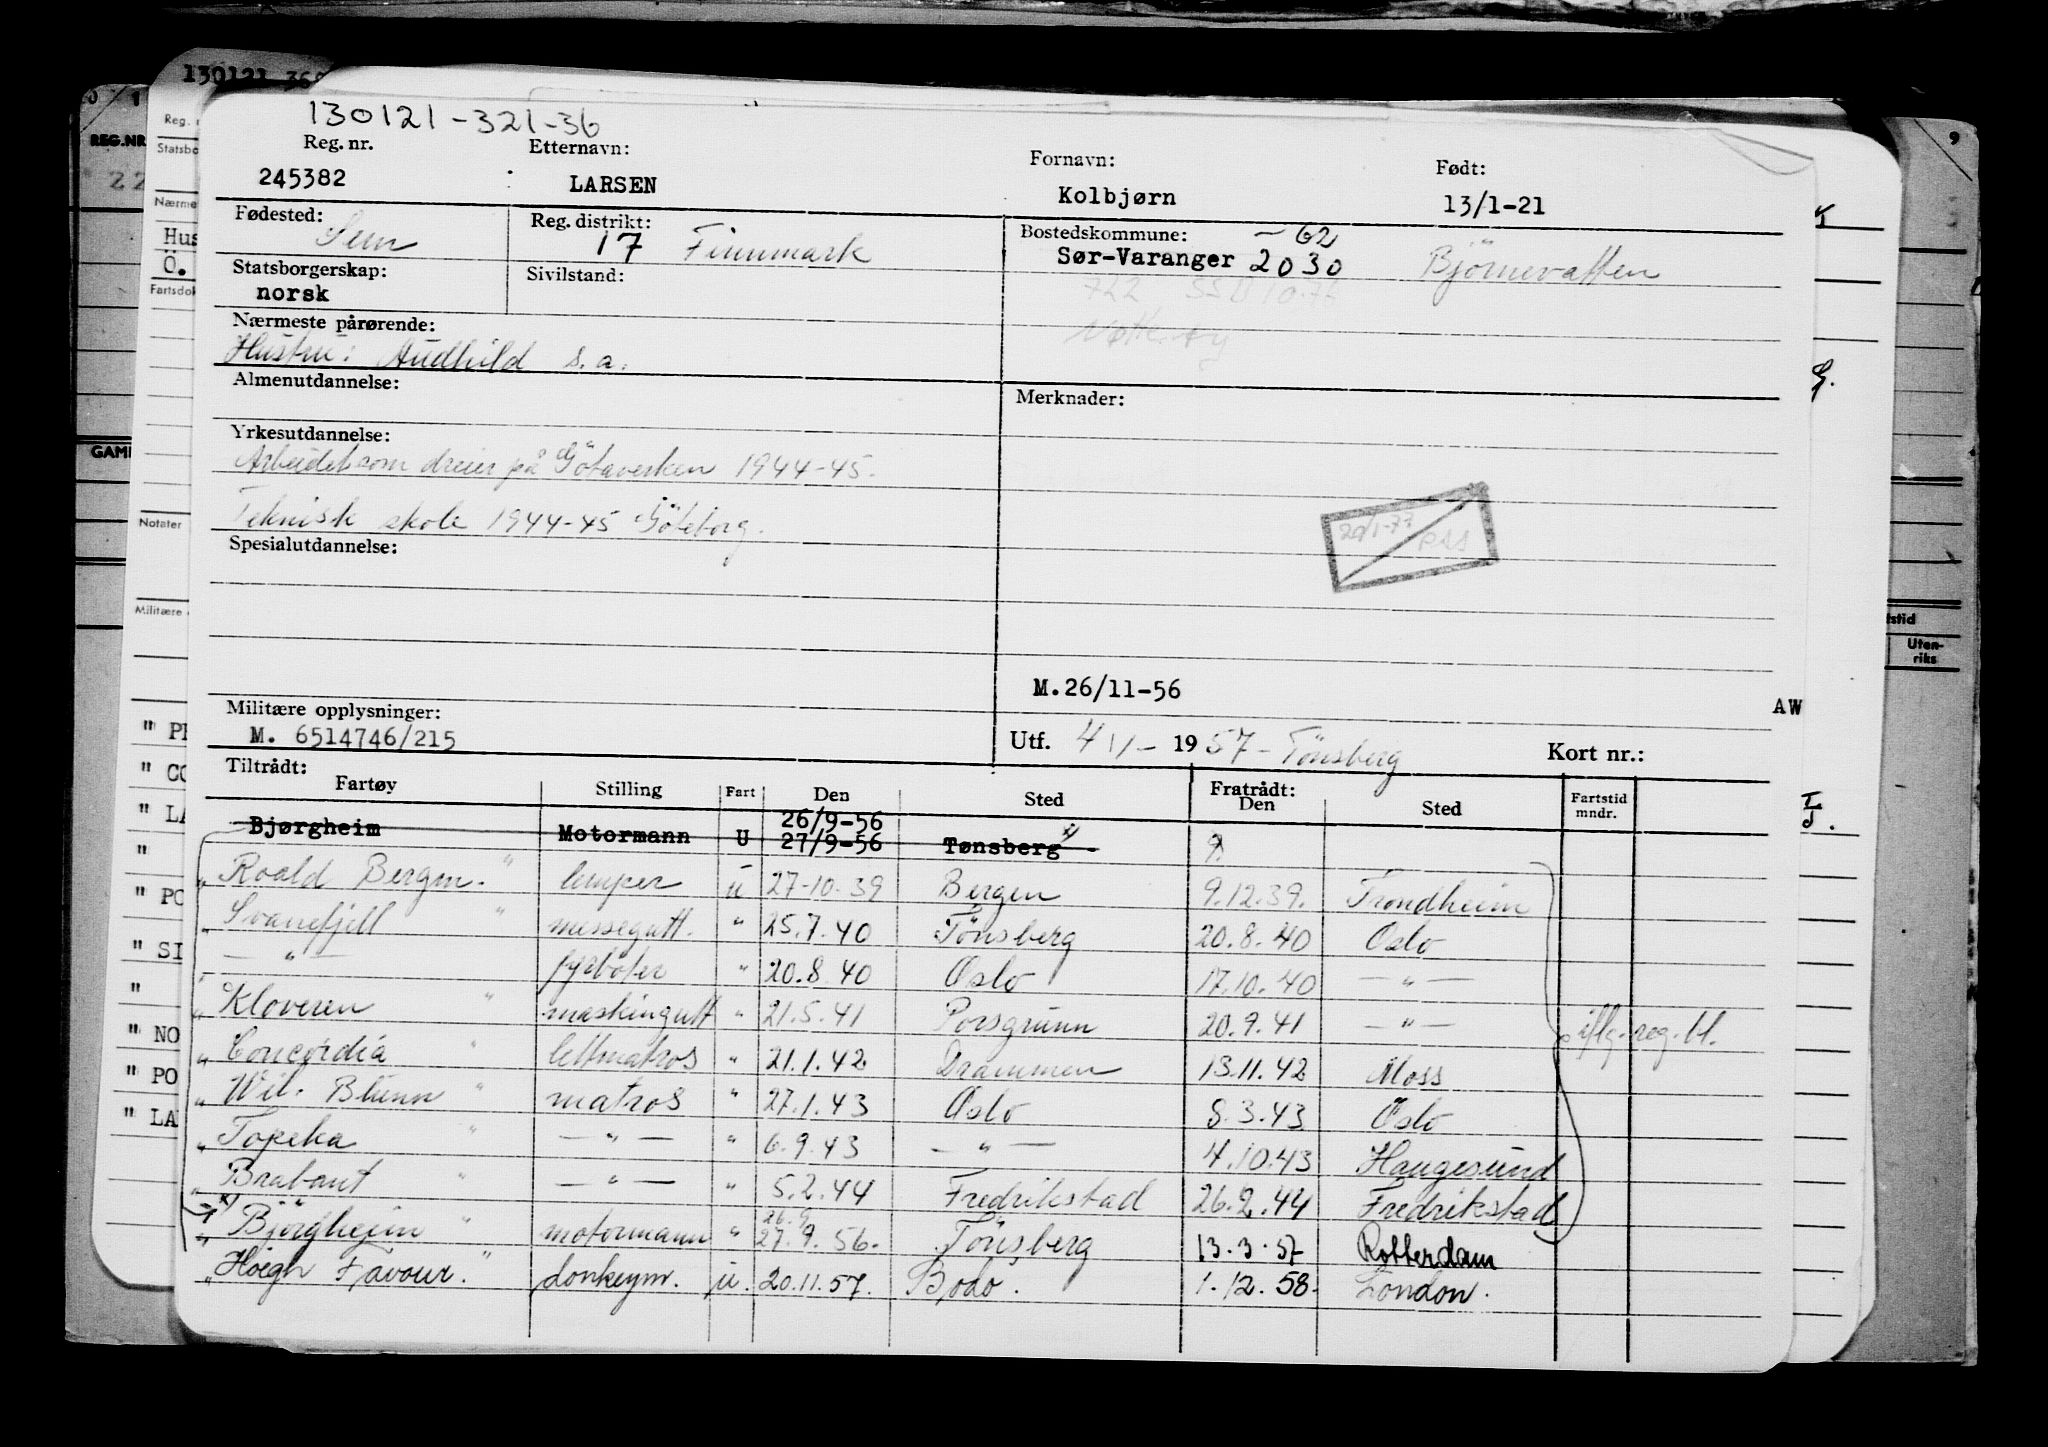 130121 36
130121-321-36
Reg. nr. Etternavn: Fornavn: Født:
245382 LARSEN Kolbjørn 13/1-21
Fødested: Reg. distrikt: Bostedskommune: -62
Sem 17 Finnmark Sør-Varanger 2030 Björnevatten
Statsborgerskap: Sivilstand:
norsk 722
Nærmeste pårørende:
Hustru: Audhild s.a.
Almenutdannelse: Merknader:
Yrkesutdannelse:
Arbeidet som dreier på Götaverken 1944-45.
Teknisk skole 1944-45 Göteborg.
20/1-77
Spesialutdannelse:
M.26/11-56
AW
Militære opplysninger:
M. 6514746/215
Utf. 4/1- 1957- Tönsberg Kort nr.:
Tiltrådt: Fratrådt:
Fartøy Stilling Fart Den Sted Den Sted Fartstid mndr.
Bjørgheim Motormann U 26/9-56 27/9-56 Tønsberg x/ -
" Roald Bergm. " lemper u 27-10.39 Bergen 9.12.39. Trondheim
" Svanefjell " messegutt. " 25.7.40 Tönsberg 20.8.40 Oslo
— " — fyrböter " 20.8.40 Oslo 17.10.40 — " —
" Kloveren " maskingutt " 21.5.41 Porsgrunn 20.9.41 — " — iflg. reg. bl.
" Concordia " lettmatros " 21.1.42 Drammen 13.11.42 Moss
" Wil. Blumn " matros " 27.1.43 Oslo 8.3.43 Oslo
" Topeka " — " — " 6.9.43 — " — 4.10.43 Haugesund
" Brabant " — " — " 5.2.44 Fredrikstad 26.2.44 Fredrikstad
x/ " Björgheim " motormann " 26.9 27.9.56. Tönsberg 13.3.57 Rotterdam
" Höegh Favour. " donkeym. u. 20.11.57. Bodo. 1.12.58. London.
REG.NR
22
Reg. n
Statsbo
Nærme
Hus
Ö.
Fartsdok
GAM
Notater
Militære
" PE
" CO
" LA
"
" PO
" SI
"
" NO
" PO
" LA
9
stid
Uten-
riks